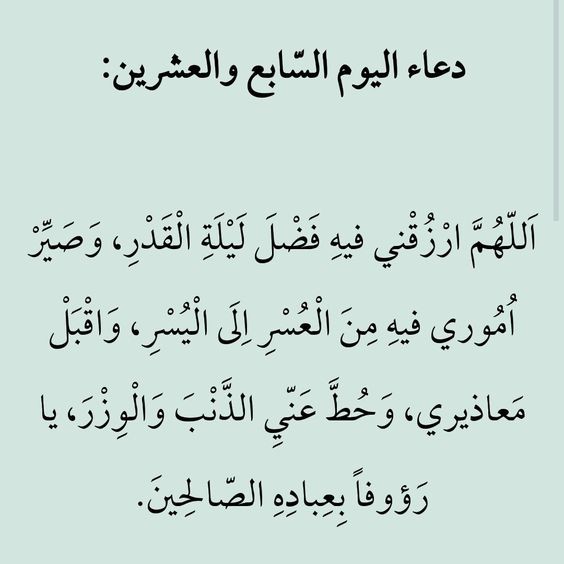 دعاء اليوم السّابع والعشرين:
اَللّهُمَّ ارْزُقْني فيهِ فَضْلَ لَيْلَةِ الْقَدْرِ، وَصَيِّرْ
اُمُوري فيهِ مِنَ الْعُسْرِ اِلَى الْيُسْرِ، وَاقْبَلْ
مَعاذيري، وَحُطَّ عَنّيِ الذَّنْبَ وَالْوِزْرَ، يا
رَؤوفاً بِعِبادِهِ الصّالِحينَ.